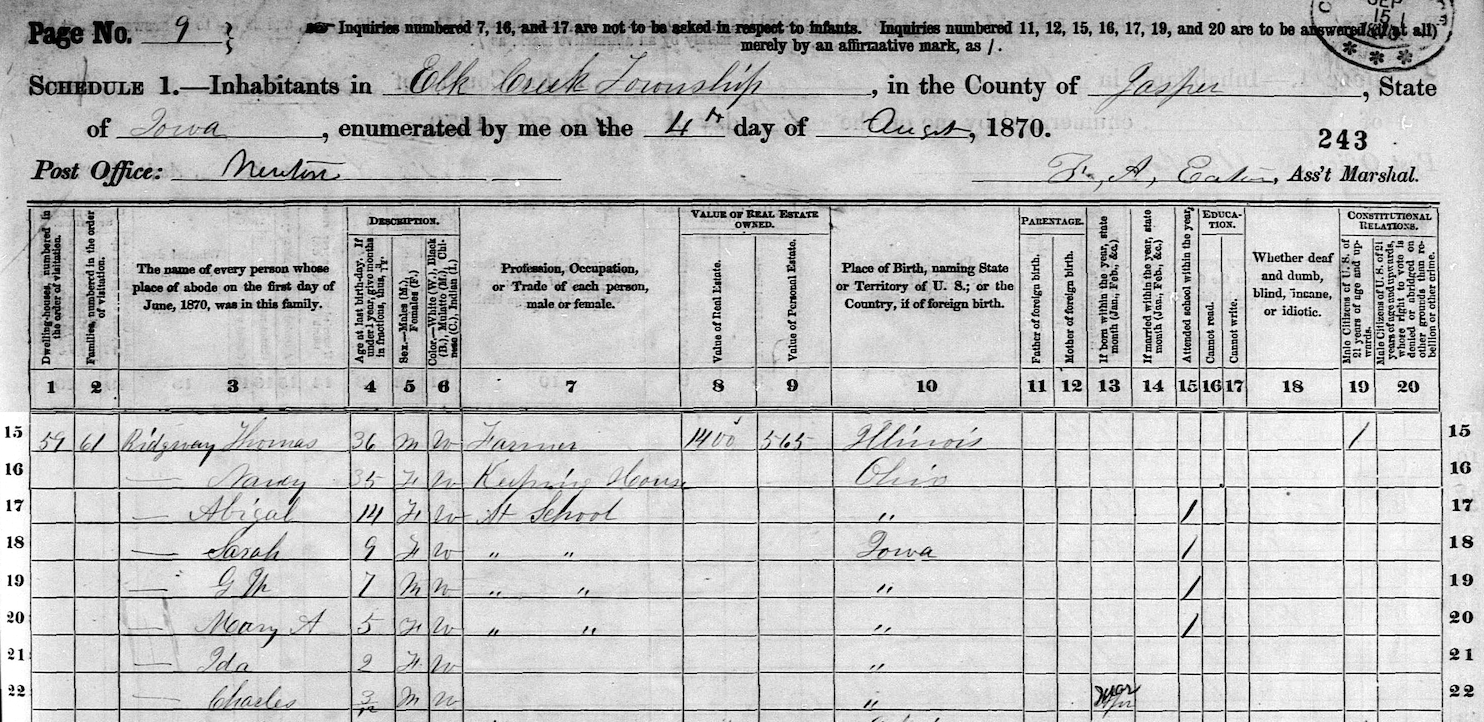 Page No. 9 }
Inquiries numbered 7, 16, and 17 are not to be asked in respect to infants. Inquiries numbered 11, 12, 15, 16, 17, 19, and 20 are to be answered (if at all)
merely by an affirmative mark, as /.
SCHEDULE 1.—Inhabitants in Elk Creek Township, in the County of Jasper, State
of Iowa, enumerated by me on the 4th day of Augst, 1870.
243
Post Office: Newton
F. A. Eaton, Ass't Marshal.
Dwelling-houses, numbered in the order of visitation.
Families, numbered in the order of visitation.
The name of every person whose place of abode on the first day of June, 1870, was in this family.
DESCRIPTION.
Age at last birth-day. If under 1 year, give months in fractions, thus, 3/12
Sex.—Males (M.), Females (F.)
Color.—White (W.), Black (B.), Mulatto (M.), Chinese (C.), Indian (I.)
Profession, Occupation, or Trade of each person, male or female.
VALUE OF REAL ESTATE OWNED.
Value of Real Estate.
Value of Personal Estate.
Place of Birth, naming State or Territory of U. S.; or the Country, if of foreign birth.
PARENTAGE.
Father of foreign birth.
Mother of foreign birth.
If born within the year, state month (Jan., Feb., &c.)
If married within the year, state month (Jan., Feb., &c.)
Attended school within the year.
EDUCATION.
Cannot read.
Cannot write.
Whether deaf and dumb, blind, insane, or idiotic.
CONSTITUTIONAL RELATIONS.
Male Citizens of U. S. of 21 years of age and upwards.
Male Citizens of U. S. of 21 years of age and upwards, where right to vote is denied or abridged on other grounds than rebellion or other crime.
1 2 3 4 5 6 7 8 9 10 11 12 13 14 15 16 17 18 19 20
15 59 61 Ridgway Thomas 36 M W Farmer 1400 565 Illinois / 15
16 — Nancy 35 F W Keeping House Ohio 16
17 — Abigal 14 F W At School " / 17
18 — Sarah 9 F W " " Iowa / 18
19 — G 7 M W " " " / 19
20 — Mary A 5 F W " " " / 20
21 — Ida 2 F W " 21
22 — Charles 3/12 M W " Mar 22